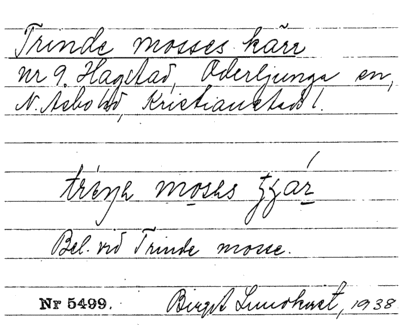 Trinde mosses kärr
nr 9. Hagstad, Oderljunga sn,
N. Åsbo hd, Kristianstad l.
Bel. vid Trinde mosse.
Nr 5499. Birgit Lundkvist, 1938